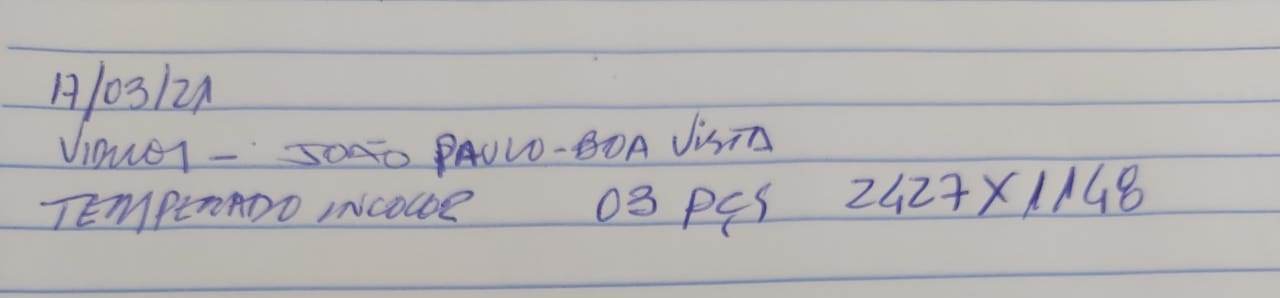 17/03/21
VIDROS - JOÃO PAULO-BOA VISTA
TEMPERADO INCOLOR 03 PÇS 2427X1148